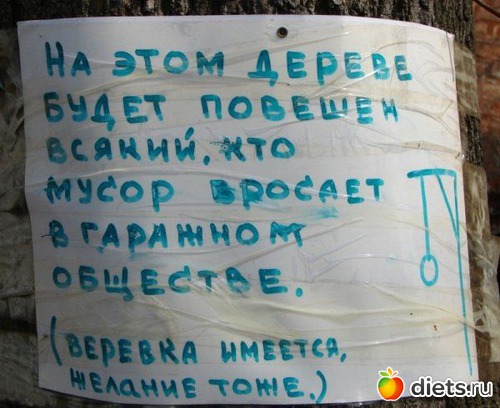 На этом дереве
будет повешен
всякий, кто
мусор вросает
в гаражном
обществе.
(Веревка имеется,
желание тоже.)
diets.ru